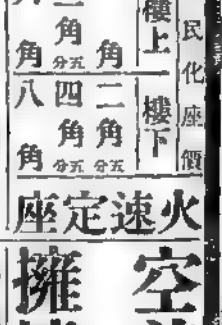 民化座價
樓上
角
角五分
角
樓下
二角五分
四角五分
八角
火速定座
空
擁